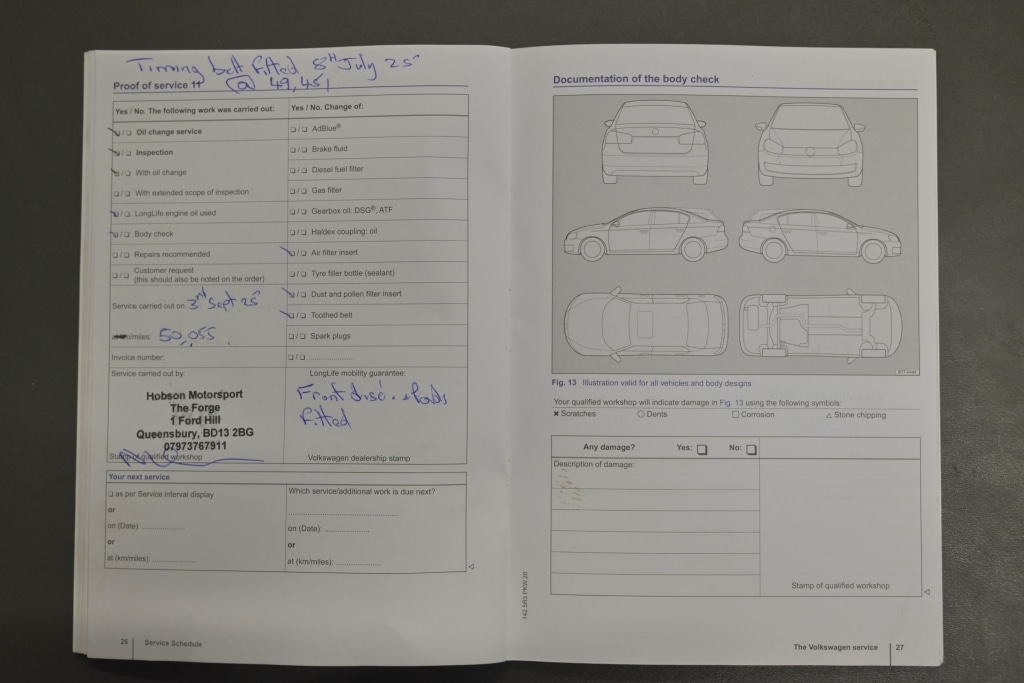 Timing belt fitted 8th July 25"
Proof of service 11 @ 49,451
Yes / No. The following work was carried out:
Yes / No. Change of:
❑ / ❑ Oil change service
❑ / ❑ AdBlue®
❑ / ❑ Inspection
❑ / ❑ Brake fluid
❑ / ❑ With oil change
❑ / ❑ Diesel fuel filter
❑ / ❑ With extended scope of inspection
❑ / ❑ Gas filter
❑ / ❑ LongLife engine oil used
❑ / ❑ Gearbox oil: DSG®, ATF
❑ / ❑ Body check
❑ / ❑ Haldex coupling: oil
❑ / ❑ Repairs recommended
❑ / ❑ Air filter insert
❑ / ❑ Customer request
(this should also be noted on the order)
❑ / ❑ Tyre filler bottle (sealant)
Service carried out on: 3rd Sept 25"
❑ / ❑ Dust and pollen filter insert
❑ / ❑ Toothed belt
at km/miles: 50,055
❑ / ❑ Spark plugs
Invoice number:
❑ / ❑ ....................
Service carried out by:
LongLife mobility guarantee:
Hobson Motorsport
The Forge
1 Ford Hill
Queensbury, BD13 2BG
07973767911
Front disc & Pads
fitted
Stamp of qualified workshop
Volkswagen dealership stamp
Your next service
❑ as per Service interval display
or
on (Date): ....................
or
at (km/miles): ....................
Which service/additional work is due next?
on (Date): ....................
or
at (km/miles): ....................
26 Service Schedule
142.5R3.PKW.20
Documentation of the body check
Fig. 13 Illustration valid for all vehicles and body designs
Your qualified workshop will indicate damage in Fig. 13 using the following symbols:
✖ Scratches ○ Dents □ Corrosion △ Stone chipping
Any damage? Yes: ❑ No: ❑
Description of damage:
Stamp of qualified workshop
The Volkswagen service 27